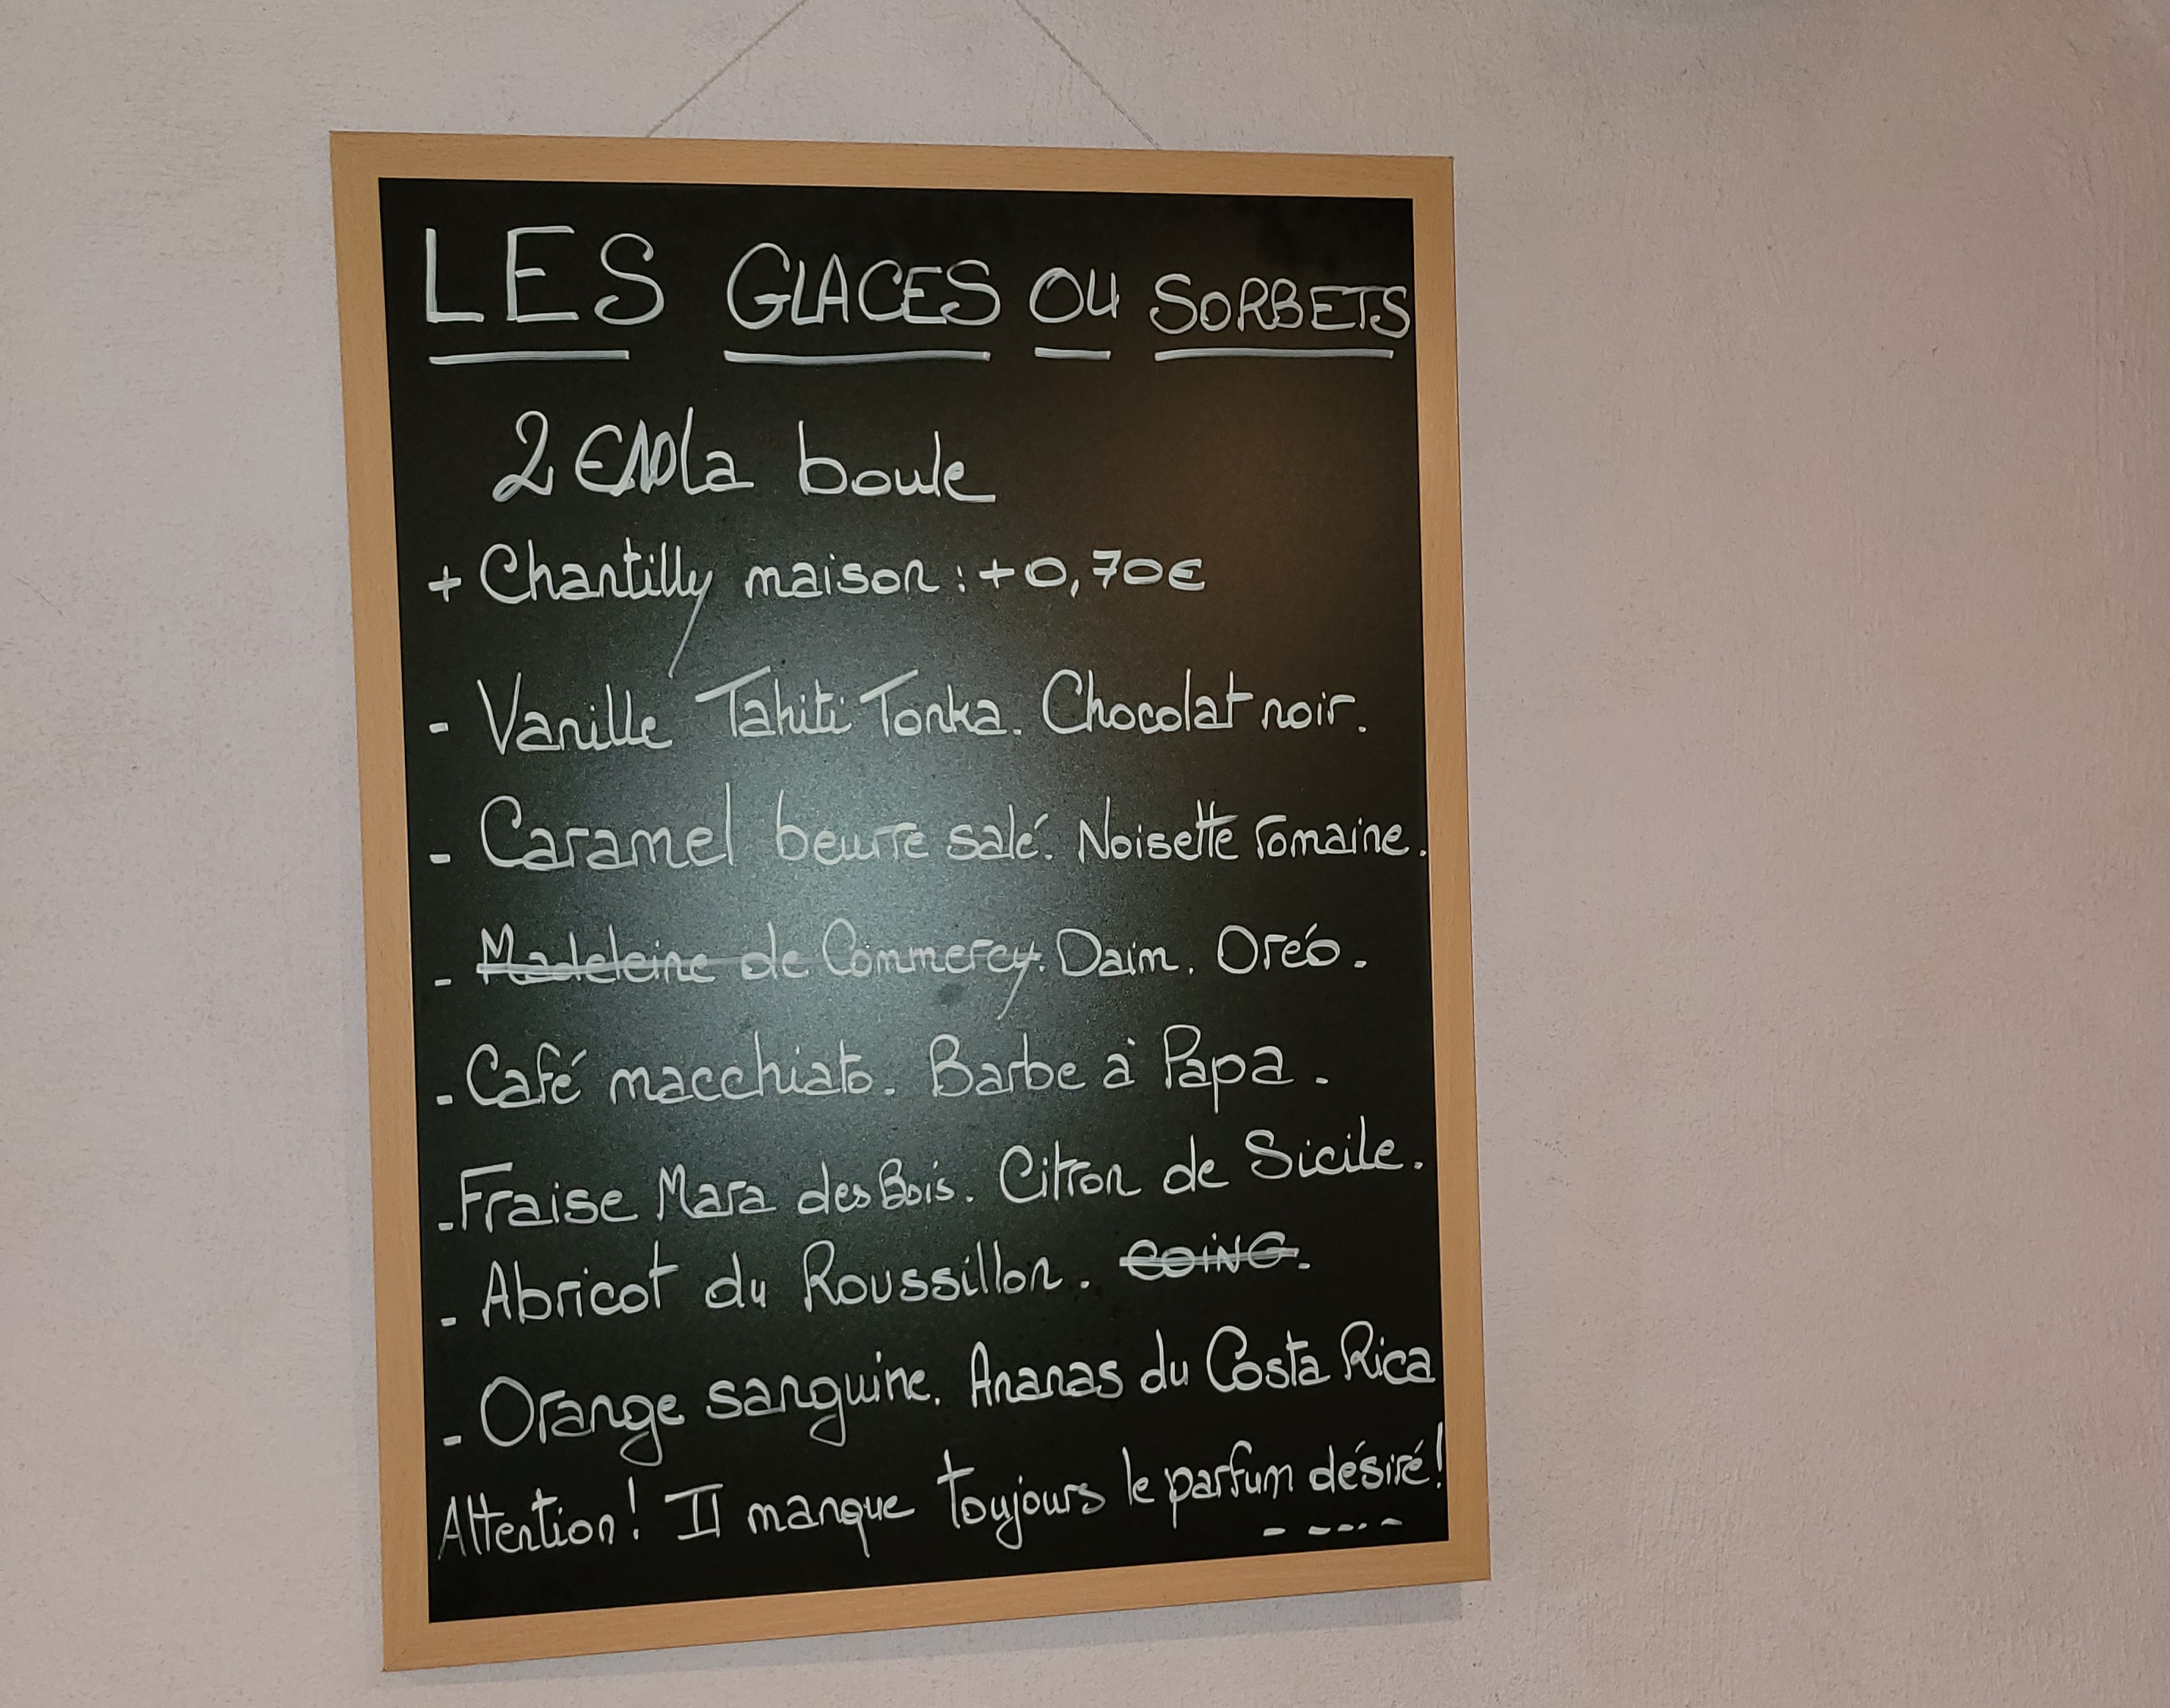 LES GLACES OU SORBETS
2€10 la boule
+ Chantilly maison : +0,70€
- Vanille Tahiti Tonka. Chocolat noir.
- Caramel beurre salé. Noisette romaine.
- Madeleine de Commercy. Daim. Oréo.
- Café macchiato. Barbe à Papa.
- Fraise Mara des Bois. Citron de Sicile.
- Abricot du Roussillon. COING.
- Orange sanguine. Ananas du Costa Rica
Attention! Il manque toujours le parfum désiré!